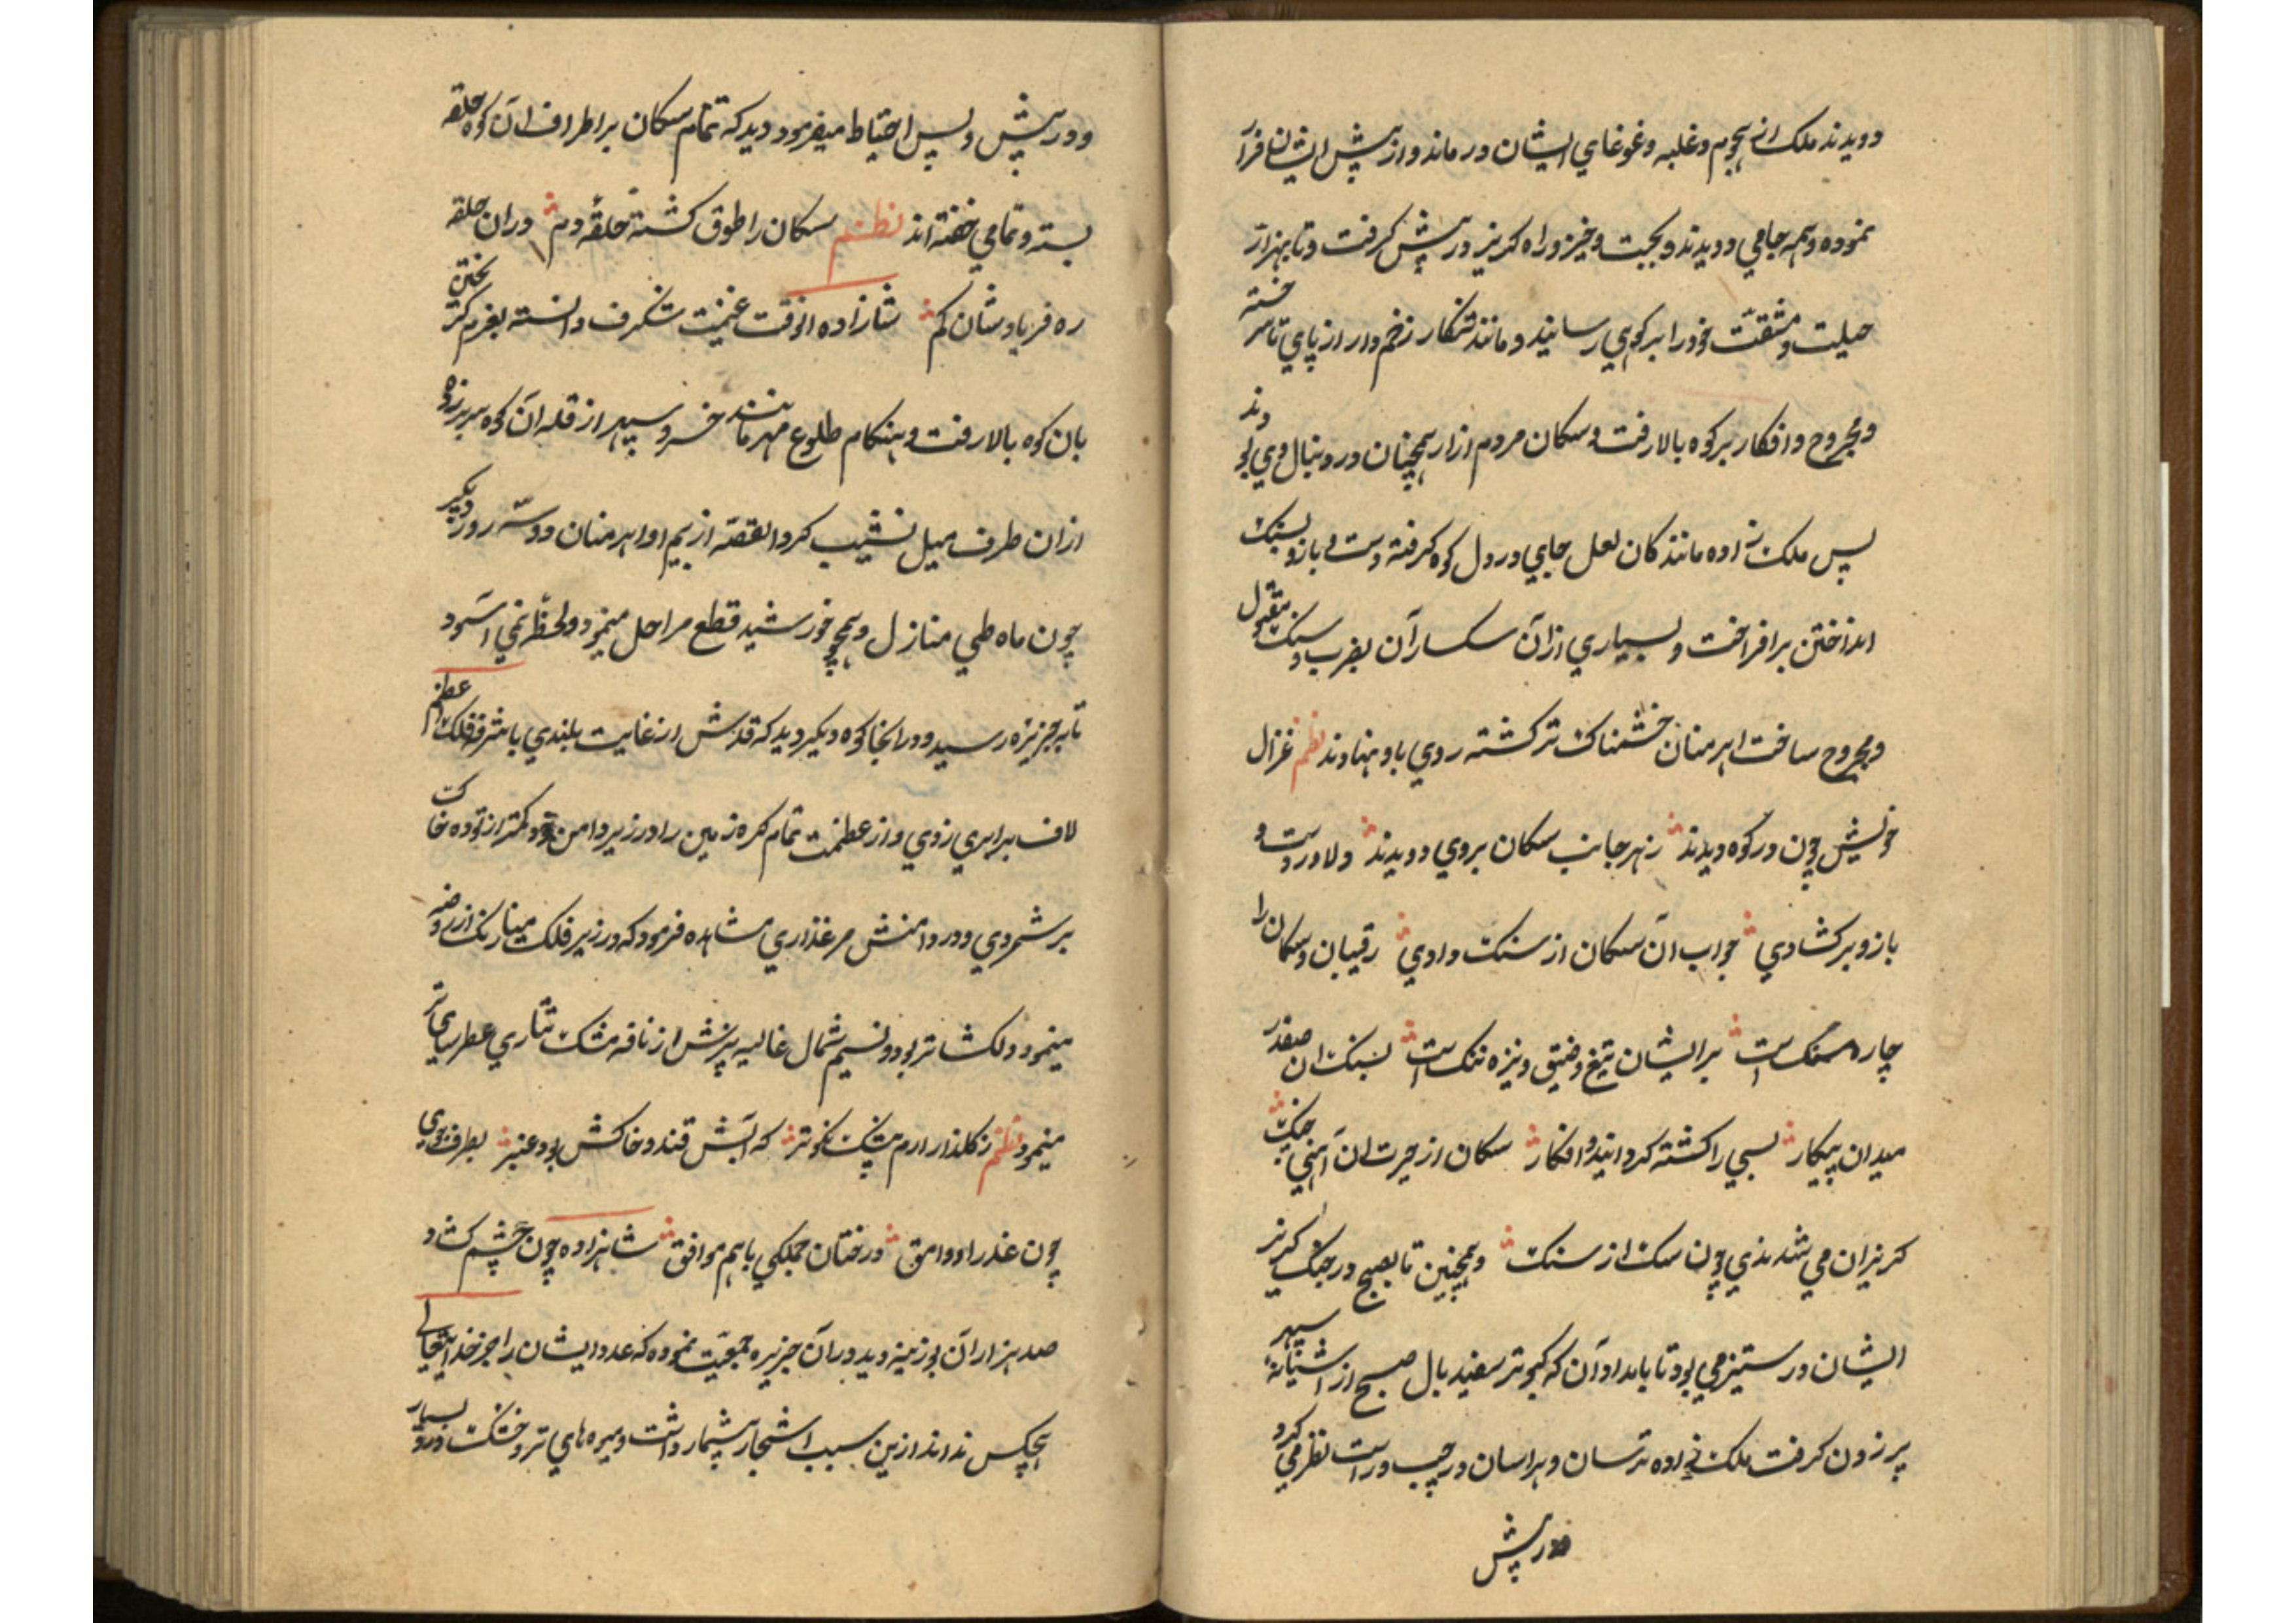 دویدند ملک از هجوم و غلبه و غوغای ایشان درماند و از پیش ایشان فرار
نموده و همه جا می دویدند و بجست و خیز و راه کریز در پیش کرفت و تا بهزار
حیلت و مشقت خود را بر کوهی رسانید و مانند شکار زخم دار از پای تا سر خسته
و مجروح و افکار بر کوه بالا رفت و سکان مردم ازار همچنان در دنبال وی بودند
پس ملک زاده مانند کان لعل جای در دل کوه کرفته دست و بازو بسنک
انداختن برافراخت و بسیاری از آن سکساران بضرب سنک مقتول
و مجروح ساخت اهرمنان خشمناک تر کشته روی باو نهادند نظم غزال
خویش چون در کوه دیدند ز هر جانب سکان بروی دویدند دلاور دست و
بازو برکشادی جواب آن سکان از سنک دادی رقیبان و سکان را
چاره سنک است بر ایشان تیغ و ضیق و نیزه ننک است بسنک ان صفدر
میدان پیکار بسی را کشته کردانید و افکار سکان از حیرت ان آهنی جنک
کریزان می شدندی چون سک از سنک و همچنین تا بصبح در جنک کریز
ایشان در ستیز می بود تا بامداد آن که کبوتر سفید بال صبح از آشیانه سپهر
پر زدن کرفت ملک زاده ترسان و هراسان در چپ و راست نظر می کرد
در پیش
و در پیش و پس احتیاط میفرمود دید که تمام سکان بر اطراف آن کوه حلقه
بسته و تمامی خفته اند نظم سکان را طوق کشته حلقه دم در ان حلقه
ره فریادشان کم شاهزاده انوقت غنیمت شکرف دانسته بعزم کریختن
بان کوه بالا رفت و هنکام طلوع مهر مانند خسرو سپهر از قله آن کوه سر بر زده
از ان طرف میل نشیب کرد القصه از بیم او اهرمنان دو سه روز دیکر
چون ماه طی منازل و همچو خورشید قطع مراحل مینمود و لحظه نمی آسود
تا بجزیره رسید و در انجا کوه دیکر دید که قدش از غایت بلندی با شرفه فلک اعظم
لاف برابری زدی و از عظمت تمام کره زمین را در زیر دامن خود کمتر از توده خاک
بر شمردی و در دامنش مرغذاری مشاهده فرمود که در زیر فلک مینا رنک از روضه
مینمود دلکشا تر بود و نسیم شمال غالیه بیزش از نافه مشک تتاری عطرسای تر
مینمود نظم ز کلذار ارم بیشک نکوتر که آبش قند و خاکش بود عنبر بطرف جوی
چون عذرا و وامق درختان جملکی باهم موافق شاهزاده چون چشم کشاد
صد هزاران بوزینه دید در آن جزیره جمعیت نموده که عدد ایشان را جز خدایتعالی
هیچکس نداند ازین سبب اشجار بیشمار داشت و میوه های تر و خشک در و بسیار